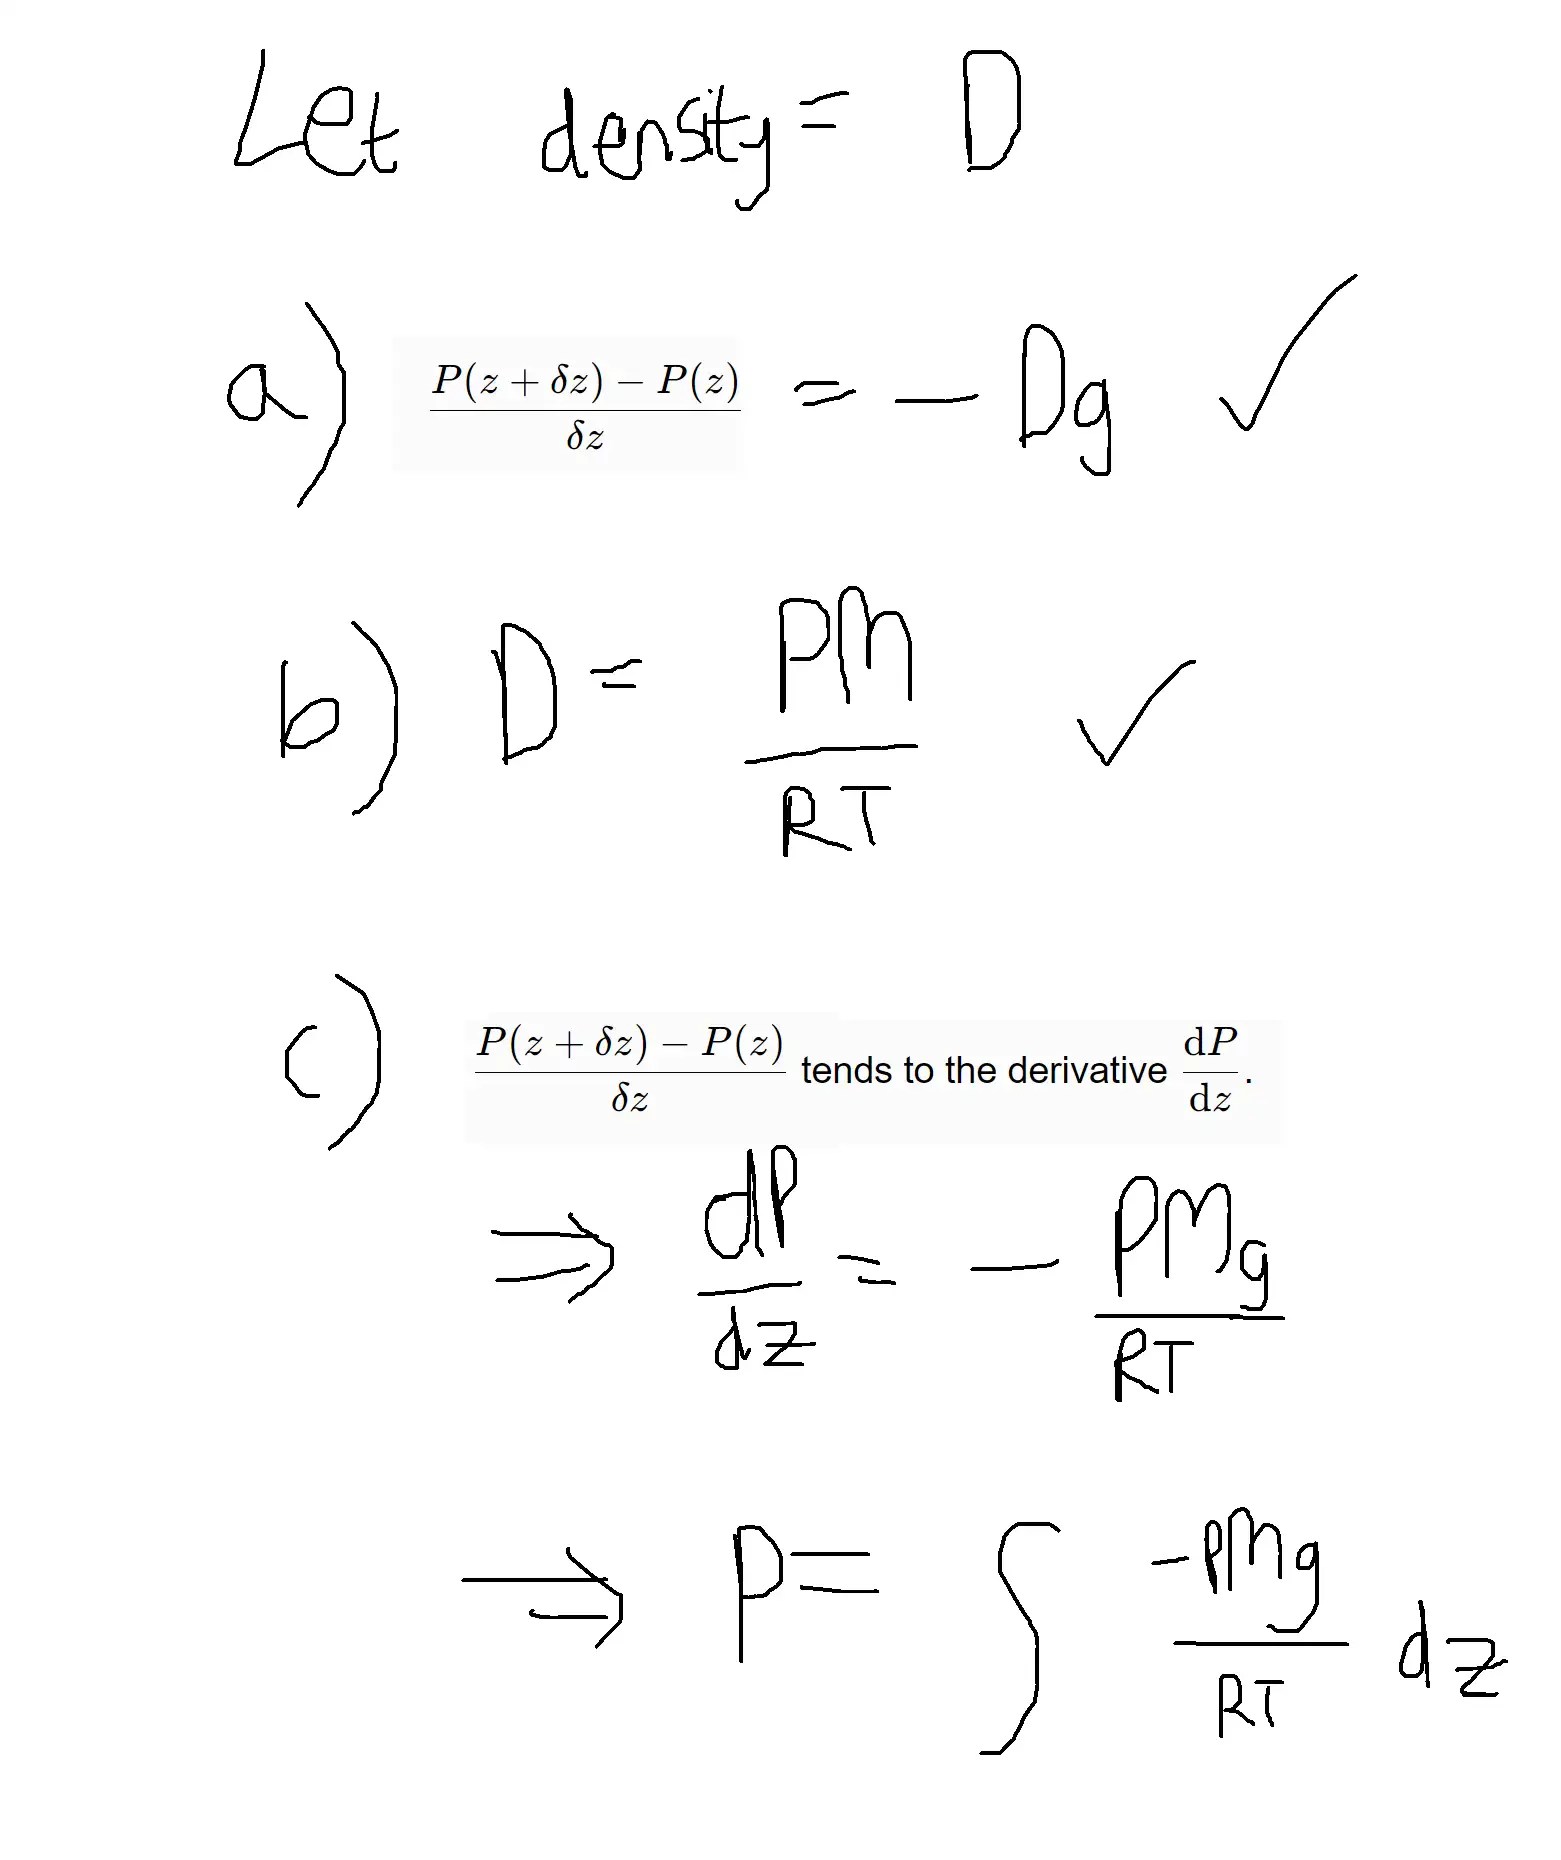 Let density = D
a) \frac{P(z + δz) − P(z)}{δz} = − Dg ✓
b) D = \frac{PM}{RT} ✓
c) \frac{P(z + δz) − P(z)}{δz} tends to the derivative \frac{dP}{dz}.
⇒ \frac{dP}{dz} = − \frac{PMg}{RT}
⇒ P = ∫ \frac{-PMg}{RT} dz